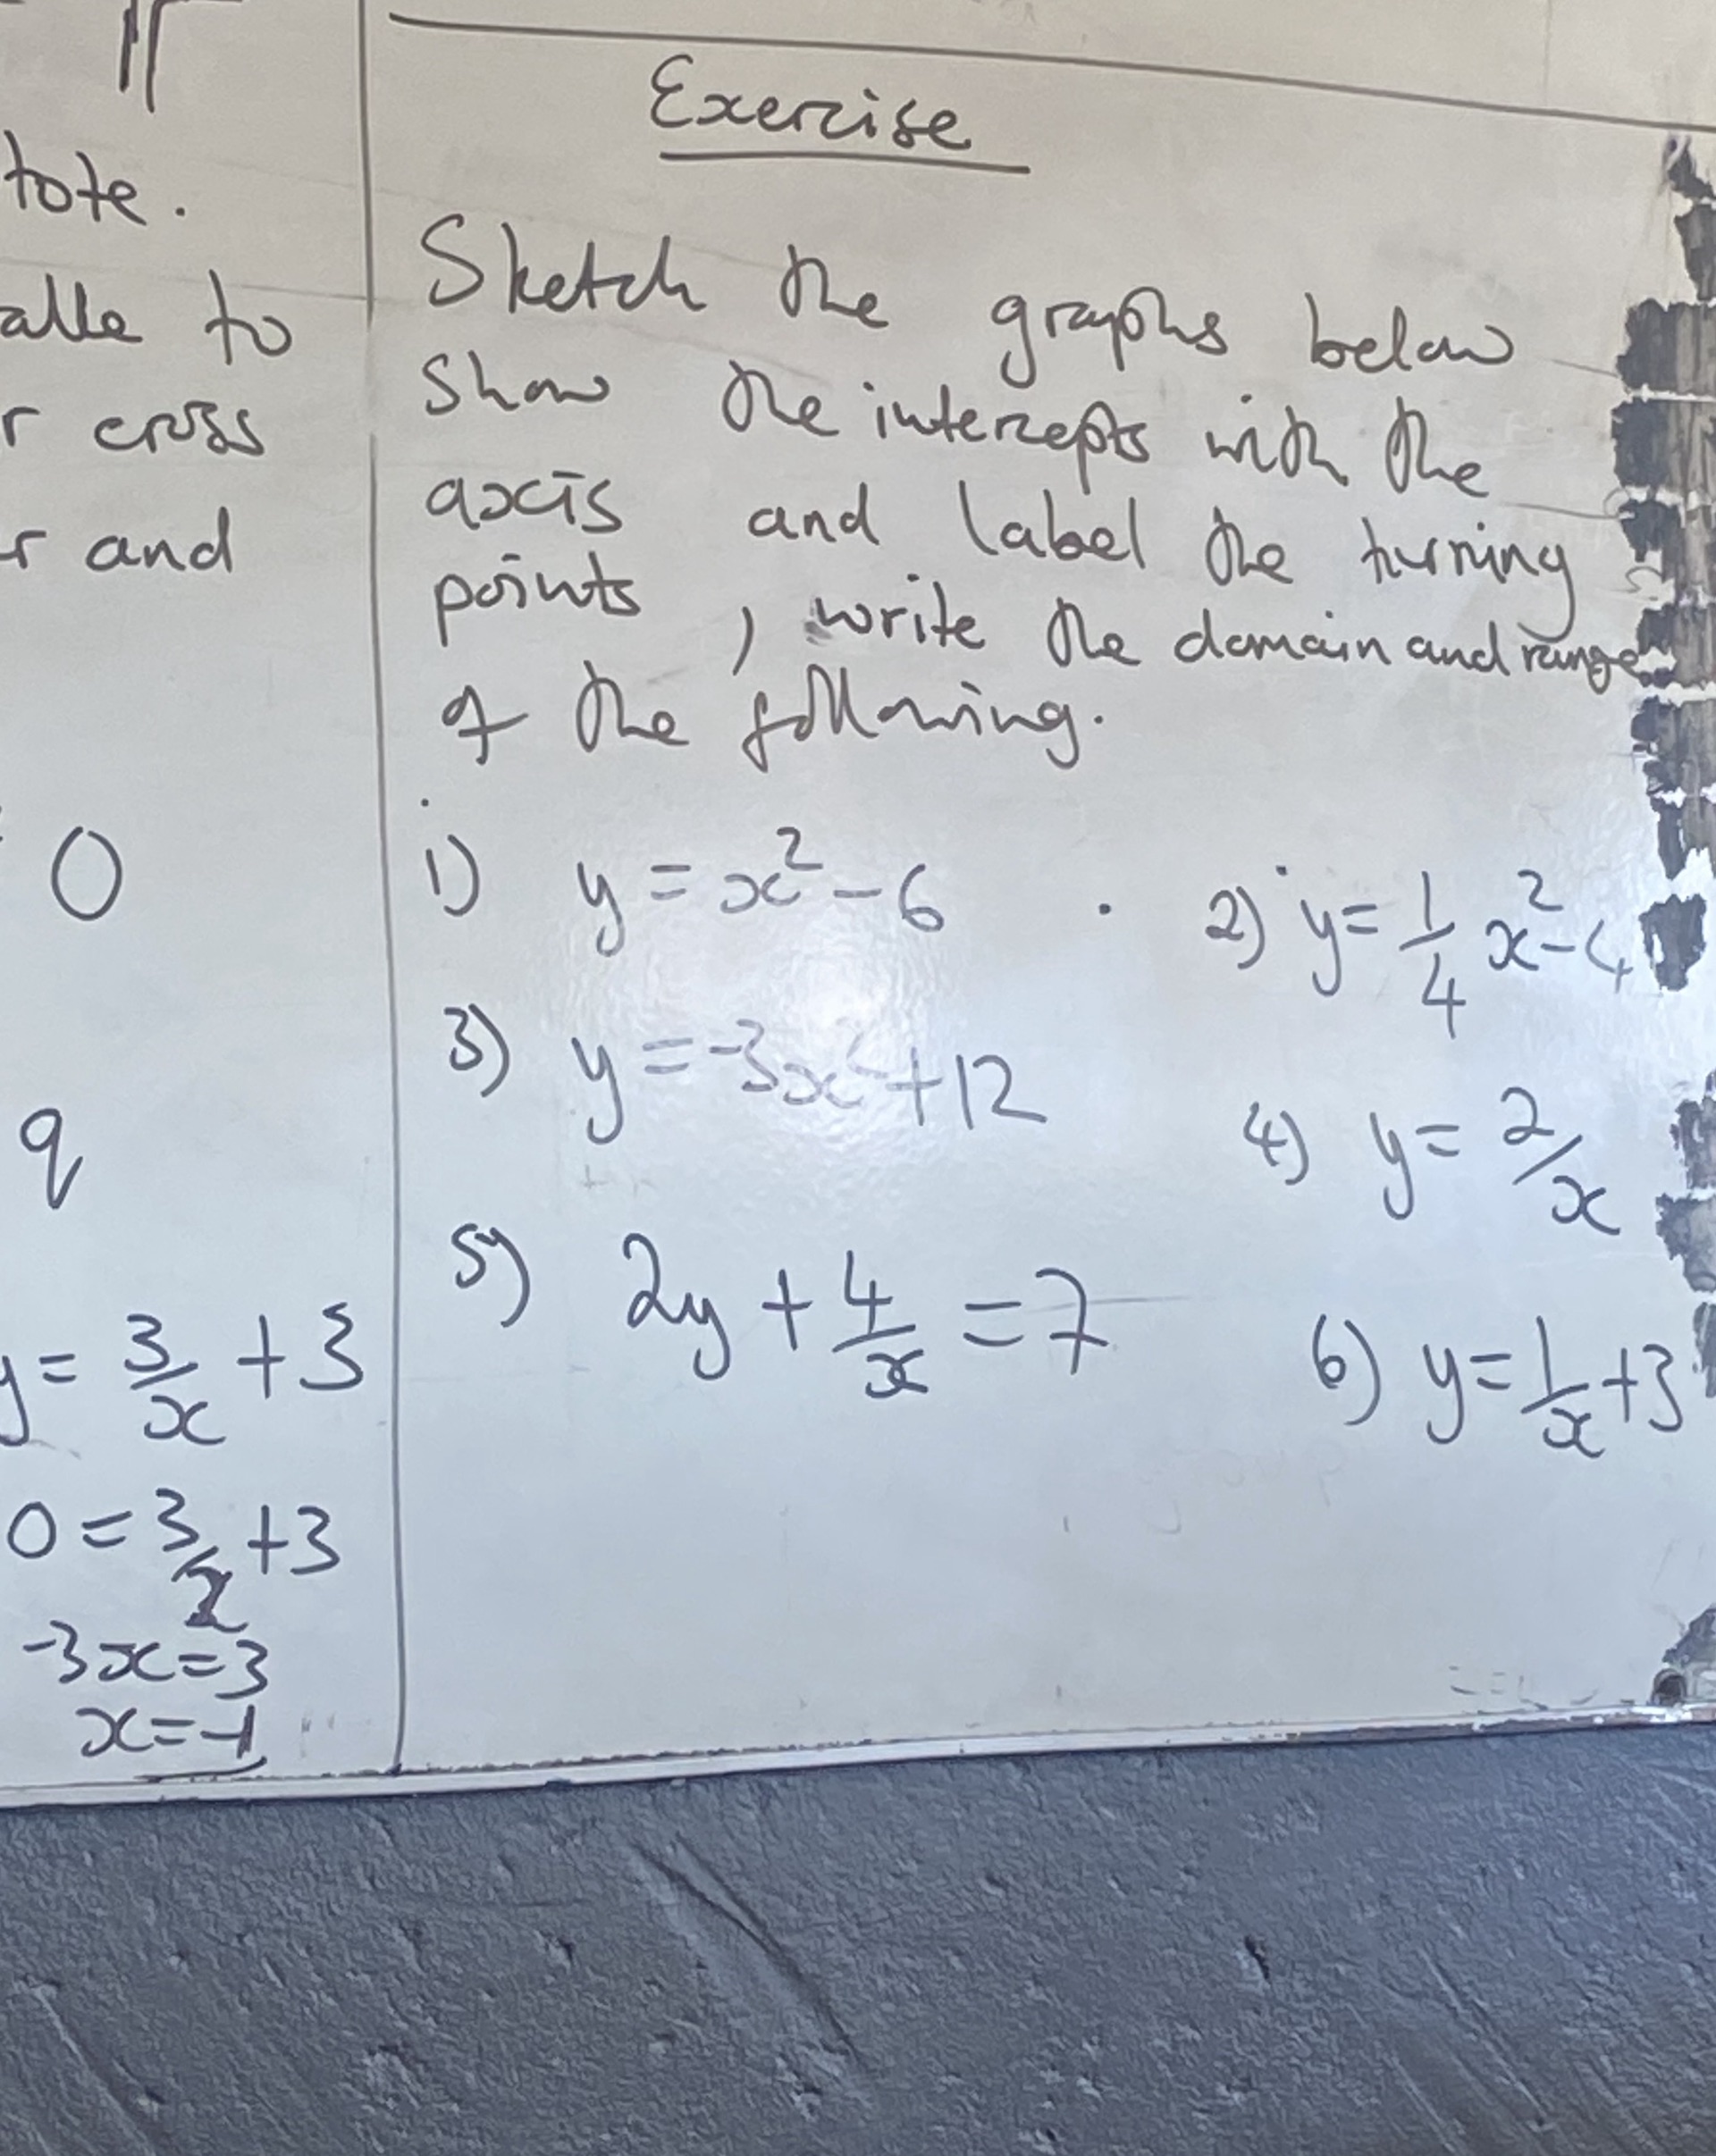 tote.
to
cross
and
0
q
y = 3/x + 3
0 = 3/x + 3
-3x = 3
x = -1
Exercise
Sketch the graphs below
Show the intercepts with the
axis and label the turning
points, write the domain and range
of the following.
1) y = x² - 6
2) y = 1/4 x² - 4
3) y = -3x² + 12
4) y = 2/x
5) 2y + 4/x = 7
6) y = 1/x + 3